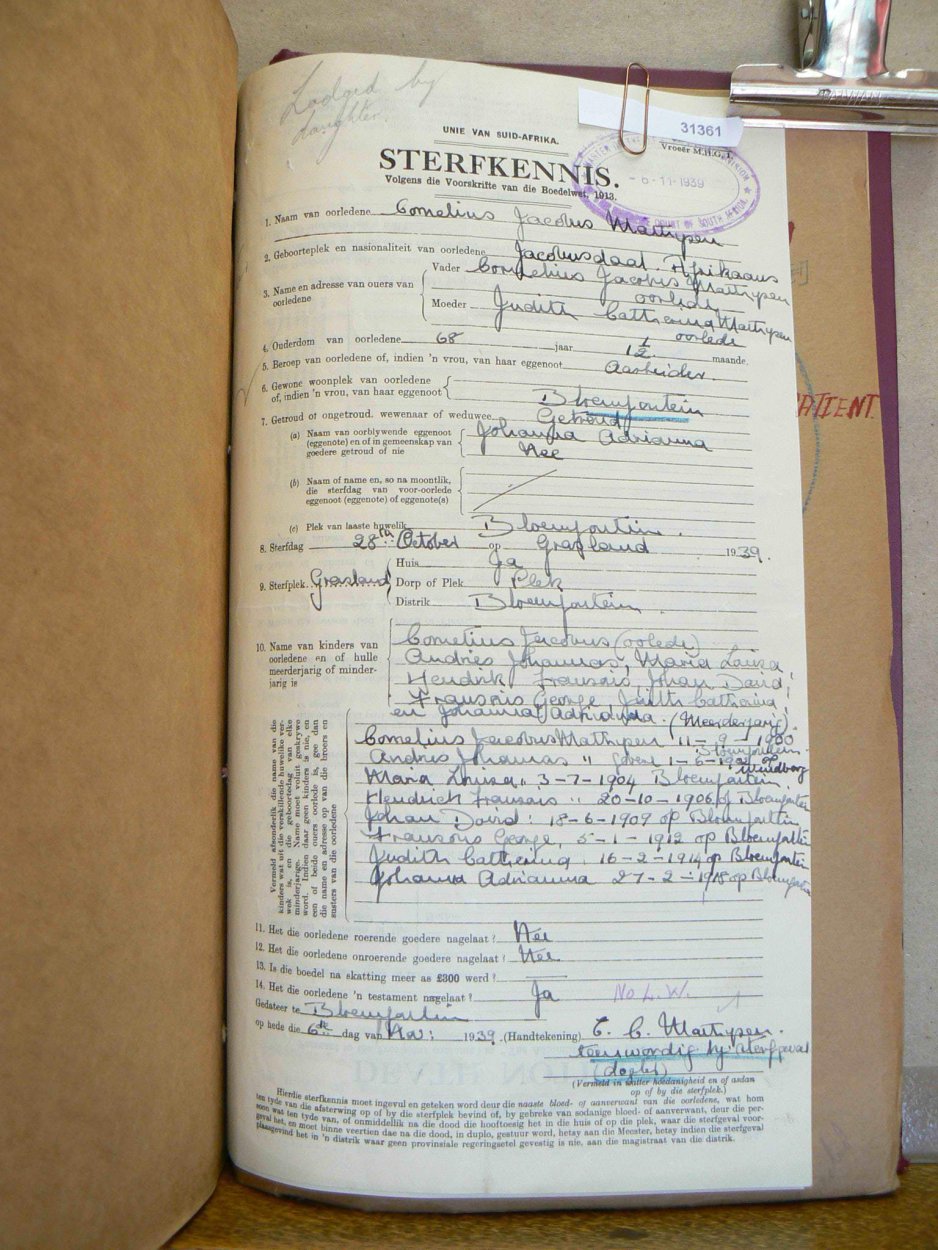 Lodged by
daughter.
31361
UNIE VAN SUID-AFRIKA.
Vroeër M.H.G.
STERFKENNIS.
Volgens die Voorskrifte van die Boedelwet, 1913.
- 6 - 11 - 1939
COURT OF SOUTH AFRICA
1. Naam van oorledene Cornelius Jacobus Martypen
2. Geboorteplek en nasionaliteit van oorledene Jacobusdaal. Afrikaans
3. Name en adresse van ouers van oorledene
Vader Cornelius Jacobus Martypen
oorlede
Moeder Judith Catherina Martypen
oorlede
4. Ouderdom van oorledene 68 jaar 1/12 maande.
5. Beroep van oorledene of, indien 'n vrou, van haar eggenoot Aarbeider.
6. Gewone woonplek van oorledene of, indien 'n vrou, van haar eggenoot
Bloemfontein
7. Getroud of ongetroud, wewenaar of weduwee Getroud
(a) Naam van oorblywende eggenoot (eggenote) en of in gemeenskap van goedere getroud of nie
Johanna Adrianna
Nee
(b) Naam of name en, so na moontlik, die sterfdag van voor-oorlede eggenoot (eggenote) of eggenote(s)
(c) Plek van laaste huwelik Bloemfontein.
8. Sterfdag 28ste October op Grasland 1939.
9. Sterfplek Grasland
Huis Ja
Dorp of Plek Plek
Distrik Bloemfontein.
10. Name van kinders van oorledene en of hulle meerderjarig of minderjarig is
Cornelius Jacobus (oorlede)
Andries Johannas, Maria Louisa,
Hendrik Fransois, Johan David,
Fransois George, Judith Catherina,
en Johanna Adrianna. (Meerderjarig).
Vermeld afsonderlik die name van die kinders wat uit die verskillende huwelike verwek is, en die geboortedag van elke minderjarige. Name moet voluit geskrywe word. Indien daar geen kinders is nie, en een of beide ouers oorlede is, gee dan die name en adresse op van die broers en susters van die oorledene
Cornelius Jacobus Martypen 11-9-1900
Bloemfontein
Andries Johannas " op
Maria Louisa " 3-7-1904 Bloemfontein
Hendrich Fransois " 20-10-1906 op Bloemfontein
Johan David : 18-6-1909 op Bloemfontein
Fransois George, 5-1-1912 op Bloemfontein
Judith Catherina, 16-2-1914 op Bloemfontein
Johanna Adrianna 27-2-1918 op Bloemfontein
11. Het die oorledene roerende goedere nagelaat? Nee
12. Het die oorledene onroerende goedere nagelaat? Nee
13. Is die boedel na skatting meer as £300 werd?
14. Het die oorledene 'n testament nagelaat? Ja
No L.W.
Gedateer te Bloemfontein
op hede die 6de dag van Nov: 1939. (Handtekening) C. C. Martypen.
teenswordig by sterfgeval
(dogter)
(Vermeld in watter hoedanigheid en of aldan op of by die sterfplek.)
Hierdie sterfkennis moet ingevul en geteken word deur die naaste bloed- of aanverwant van die oorledene, wat hom
ten tyde van die afsterwing op of by die sterfplek bevind of, by gebreke van sodanige bloed- of aanverwant, deur die persoon
wat ten tyde van, of onmiddellik na die dood die hooftoesig het in die huis of op die plek, waar die sterfgeval voorgeval
het, en moet binne veertien dae na die dood, in duplo, gestuur word, hetsy aan die Meester, hetsy indien die sterfgeval
plaasgevind het in 'n distrik waar geen provinsiale regeringsetel gevestig is nie, aan die magistraat van die distrik.